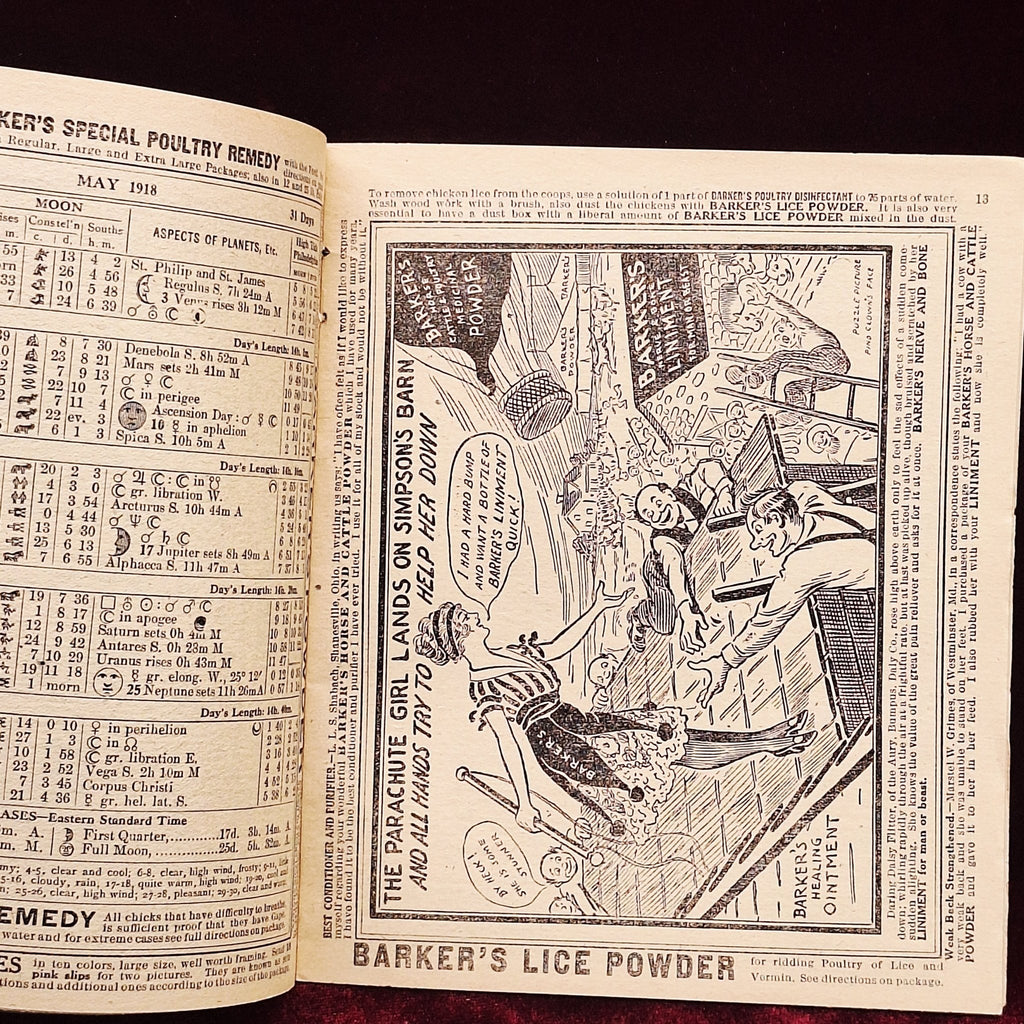 KER'S SPECIAL POULTRY REMEDY
Regular, Large and Extra Large Packages; also in 12 and
MAY 1918
31 Days
MOON
Constel'n Souths
c. d. h. m.
ASPECTS OF PLANETS, Etc.
High
13 4 2 St. Philip and St. James
26 4 56 Regulus S. 7h 24m A
10 5 48 3 Venus rises 3h 12m M
24 6 39
Day's Length: 14h.
8 7 30 Denebola S. 8h 52m A
23 8 21 Mars sets 2h 41m M
7 9 13 ♂ ♀ ☾
22 10 7 ☾ in perigee
7 11 4 Ascension Day: ♂ ☿ ☾
22 ev. 3 10 ☿ in aphelion
6 1 3 Spica S. 10h 5m A
Day's Length: 14h.
20 2 3
4 3 0 ☾ gr. libration W.
17 3 54 Arcturus S. 10h 44m A
0 4 44
13 5 30
25 6 13 17 Jupiter sets 8h 49m A
7 6 55 Alphacca S. 11h 47m A
Day's Length: 14h.
19 7 36
1 8 17 ☾ in apogee
12 8 59 Saturn sets 0h 4m M
24 9 42 Antares S. 0h 28m M
7 10 29 Uranus rises 0h 43m M
19 11 18 ☿ gr. elong. W., 25° 12'
1 morn 25 Neptune sets 11h 26m A
Day's Length: 14h.
14 0 10 ♀ in perihelion
27 1 3 ☾ in ☊
10 1 58 ☾ gr. libration E.
23 2 52 Vega S. 2h 10m M
7 3 45 Corpus Christi
21 4 36 ☿ gr. hel. lat. S.
ASES—Eastern Standard Time
First Quarter, 17d. 3h. 14m. A
Full Moon, 25d. 5h. 32m. A
my; 4-5, clear and cool; 6-8, clear, high wind, frosty; 9-11,
15-16, cloudy, rain; 17-18, quite warm, high wind;
25-26, clear, high wind; 27-28, pleasant; 29-30, clear and warm
EMEDY All chicks that have difficulty to breathe
is sufficient proof that they have Gape
water and for extreme cases see full directions on package.
ES in ten colors, large size, well worth framing.
pink slips for two pictures. They are known as
tions and additional ones according to the size of the package.
To remove chicken lice from the coops, use a solution of 1 part of BARKER'S POULTRY DISINFECTANT to 75 parts of water.
Wash wood work with a brush, also dust the chickens with BARKER'S LICE POWDER. It is also very
essential to have a dust box with a liberal amount of BARKER'S LICE POWDER mixed in the dust.
13
BEST CONDITIONER AND PURIFIER.—L. L. S. Shabach, Shanesville, Ohio, in writing us says: "I have often felt as if I would like to express
myself regarding your wonderful BARKER'S HORSE AND CATTLE POWDER which I have used for many years.
I have found it to be the best conditioner and purifier I have ever tried. I use it for all of my stock and would not be without it."
THE PARACHUTE GIRL LANDS ON SIMPSON'S BARN
AND ALL HANDS TRY TO HELP HER DOWN
I HAD A HARD BUMP
AND WANT A BOTTLE OF
BARKER'S LINIMENT
QUICK!
BY HECK!
SHE IS A
STUNNER
FOR SURE
BARKER'S
POWDER
BARKER'S
BARKER'S
POWDER
BARKER'S
LINIMENT
FOR MAN OR BEAST
PUZZLE PICTURE
FIND CLOWN'S FACE
BARKER'S
BARKER'S
HEALING
OINTMENT
Daring Daisy Flitter, of the Airy Bumpus, Daly Co., rose high above earth only to feel the sad effects of a sudden come-
down; whirling rapidly through the air at a frightful rate, but at last was picked up alive, though bruised and scratched by her
sudden alighting. She knows the value of the great pain reliever and asks for it at once. BARKER'S NERVE AND BONE
LINIMENT for man or beast.
Weak Back Strengthened.—Marsiel W. Grimes, of Westminster, Md., in a correspondence states the following: "I had a cow with a
very weak back and she was unable to stand on her feet. I purchased a package of your BARKER'S HORSE AND CATTLE
POWDER and gave it to her in her feed. I also rubbed her with your LINIMENT and now she is completely well."
BARKER'S LICE POWDER for ridding Poultry of Lice and
Vermin. See directions on package.